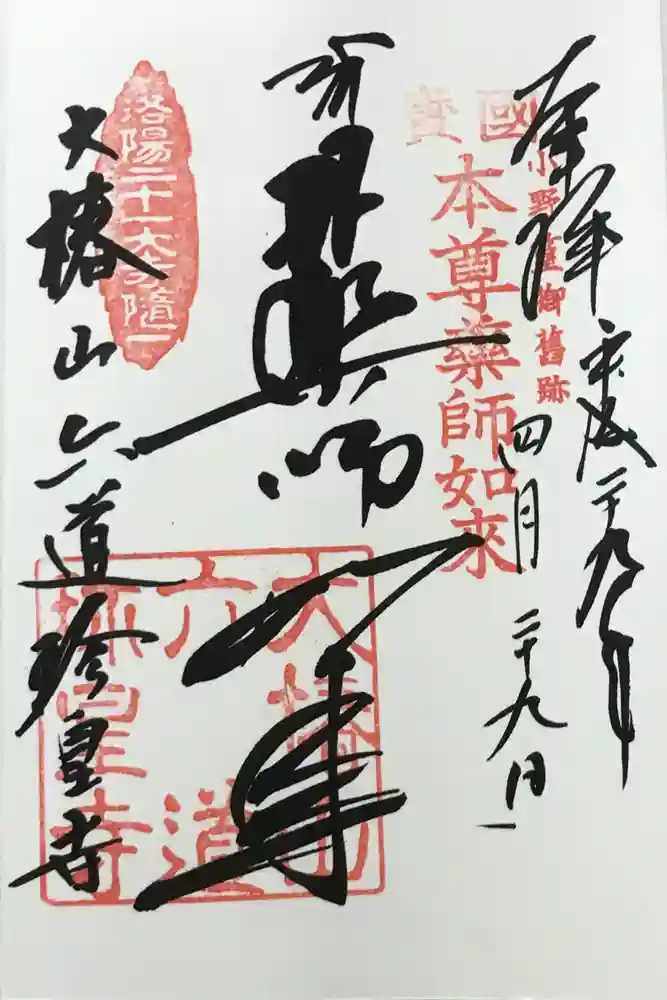 奉拝 平成二十九年
四月二十九日
小野篁御舊跡
國寶
本尊藥師如來
薬師如来
洛陽二十一大寺隨一
大椿山 六道珍皇寺
大椿山
六道
珎皇寺